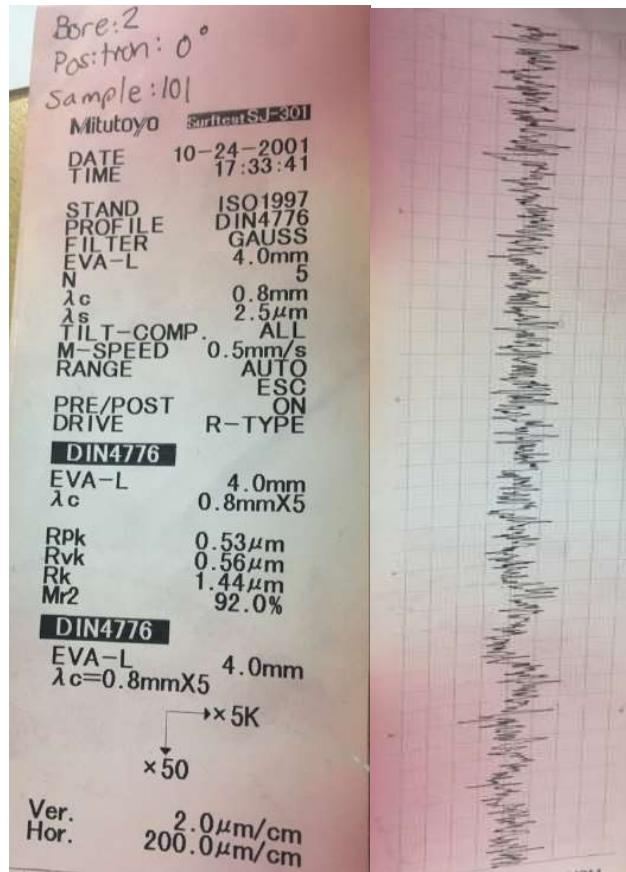 Bore: 2
Position: 0°
Sample: 101
Mitutoyo SurftestSJ-301
DATE 10-24-2001
TIME 17:33:41
STAND ISO1997
PROFILE DIN4776
FILTER GAUSS
EVA-L 4.0mm
N 5
λc 0.8mm
λs 2.5μm
TILT-COMP. ALL
M-SPEED 0.5mm/s
RANGE AUTO
ESC
PRE/POST ON
DRIVE R-TYPE
DIN4776
EVA-L 4.0mm
λc 0.8mmX5
Rpk 0.53μm
Rvk 0.56μm
Rk 1.44μm
Mr2 92.0%
DIN4776
EVA-L 4.0mm
λc=0.8mmX5
×5K
×50
Ver. 2.0μm/cm
Hor. 200.0μm/cm